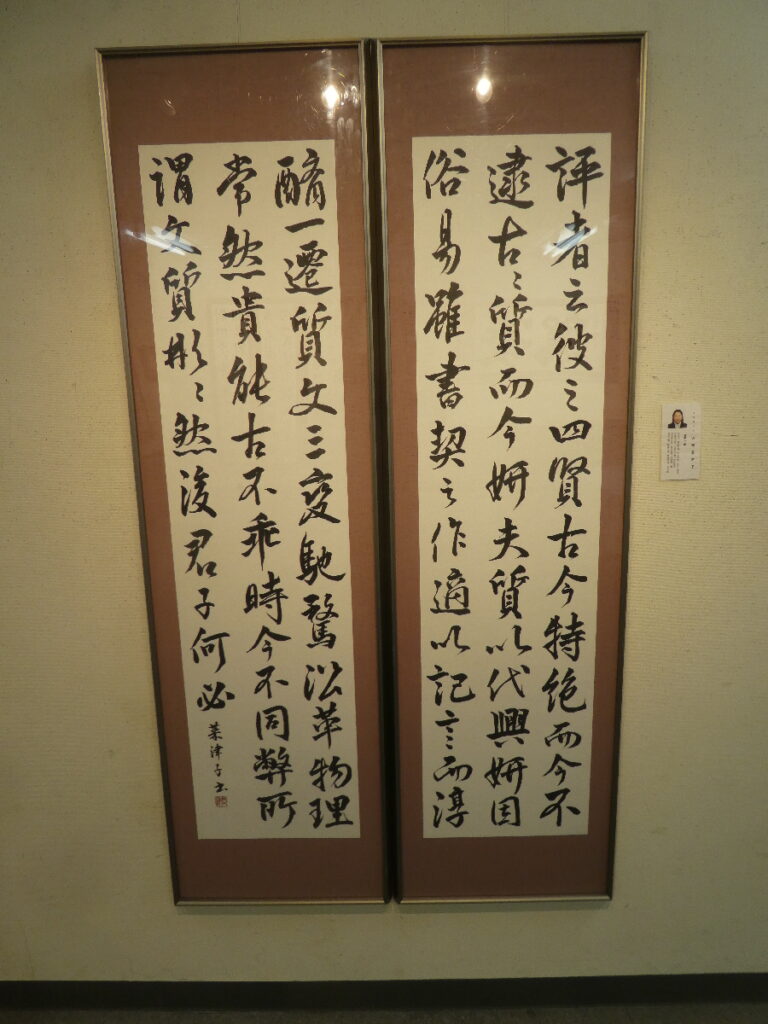 評者云彼之四賢古今特絶而今不
逮古〻質而今妍夫質以代興妍因
俗易雖書契之作適以記言而淳
醨一遷質文三變馳騖沿革物理
常然貴能古不乖時今不同弊所
謂文質彬〻然後君子何必
葉津子書